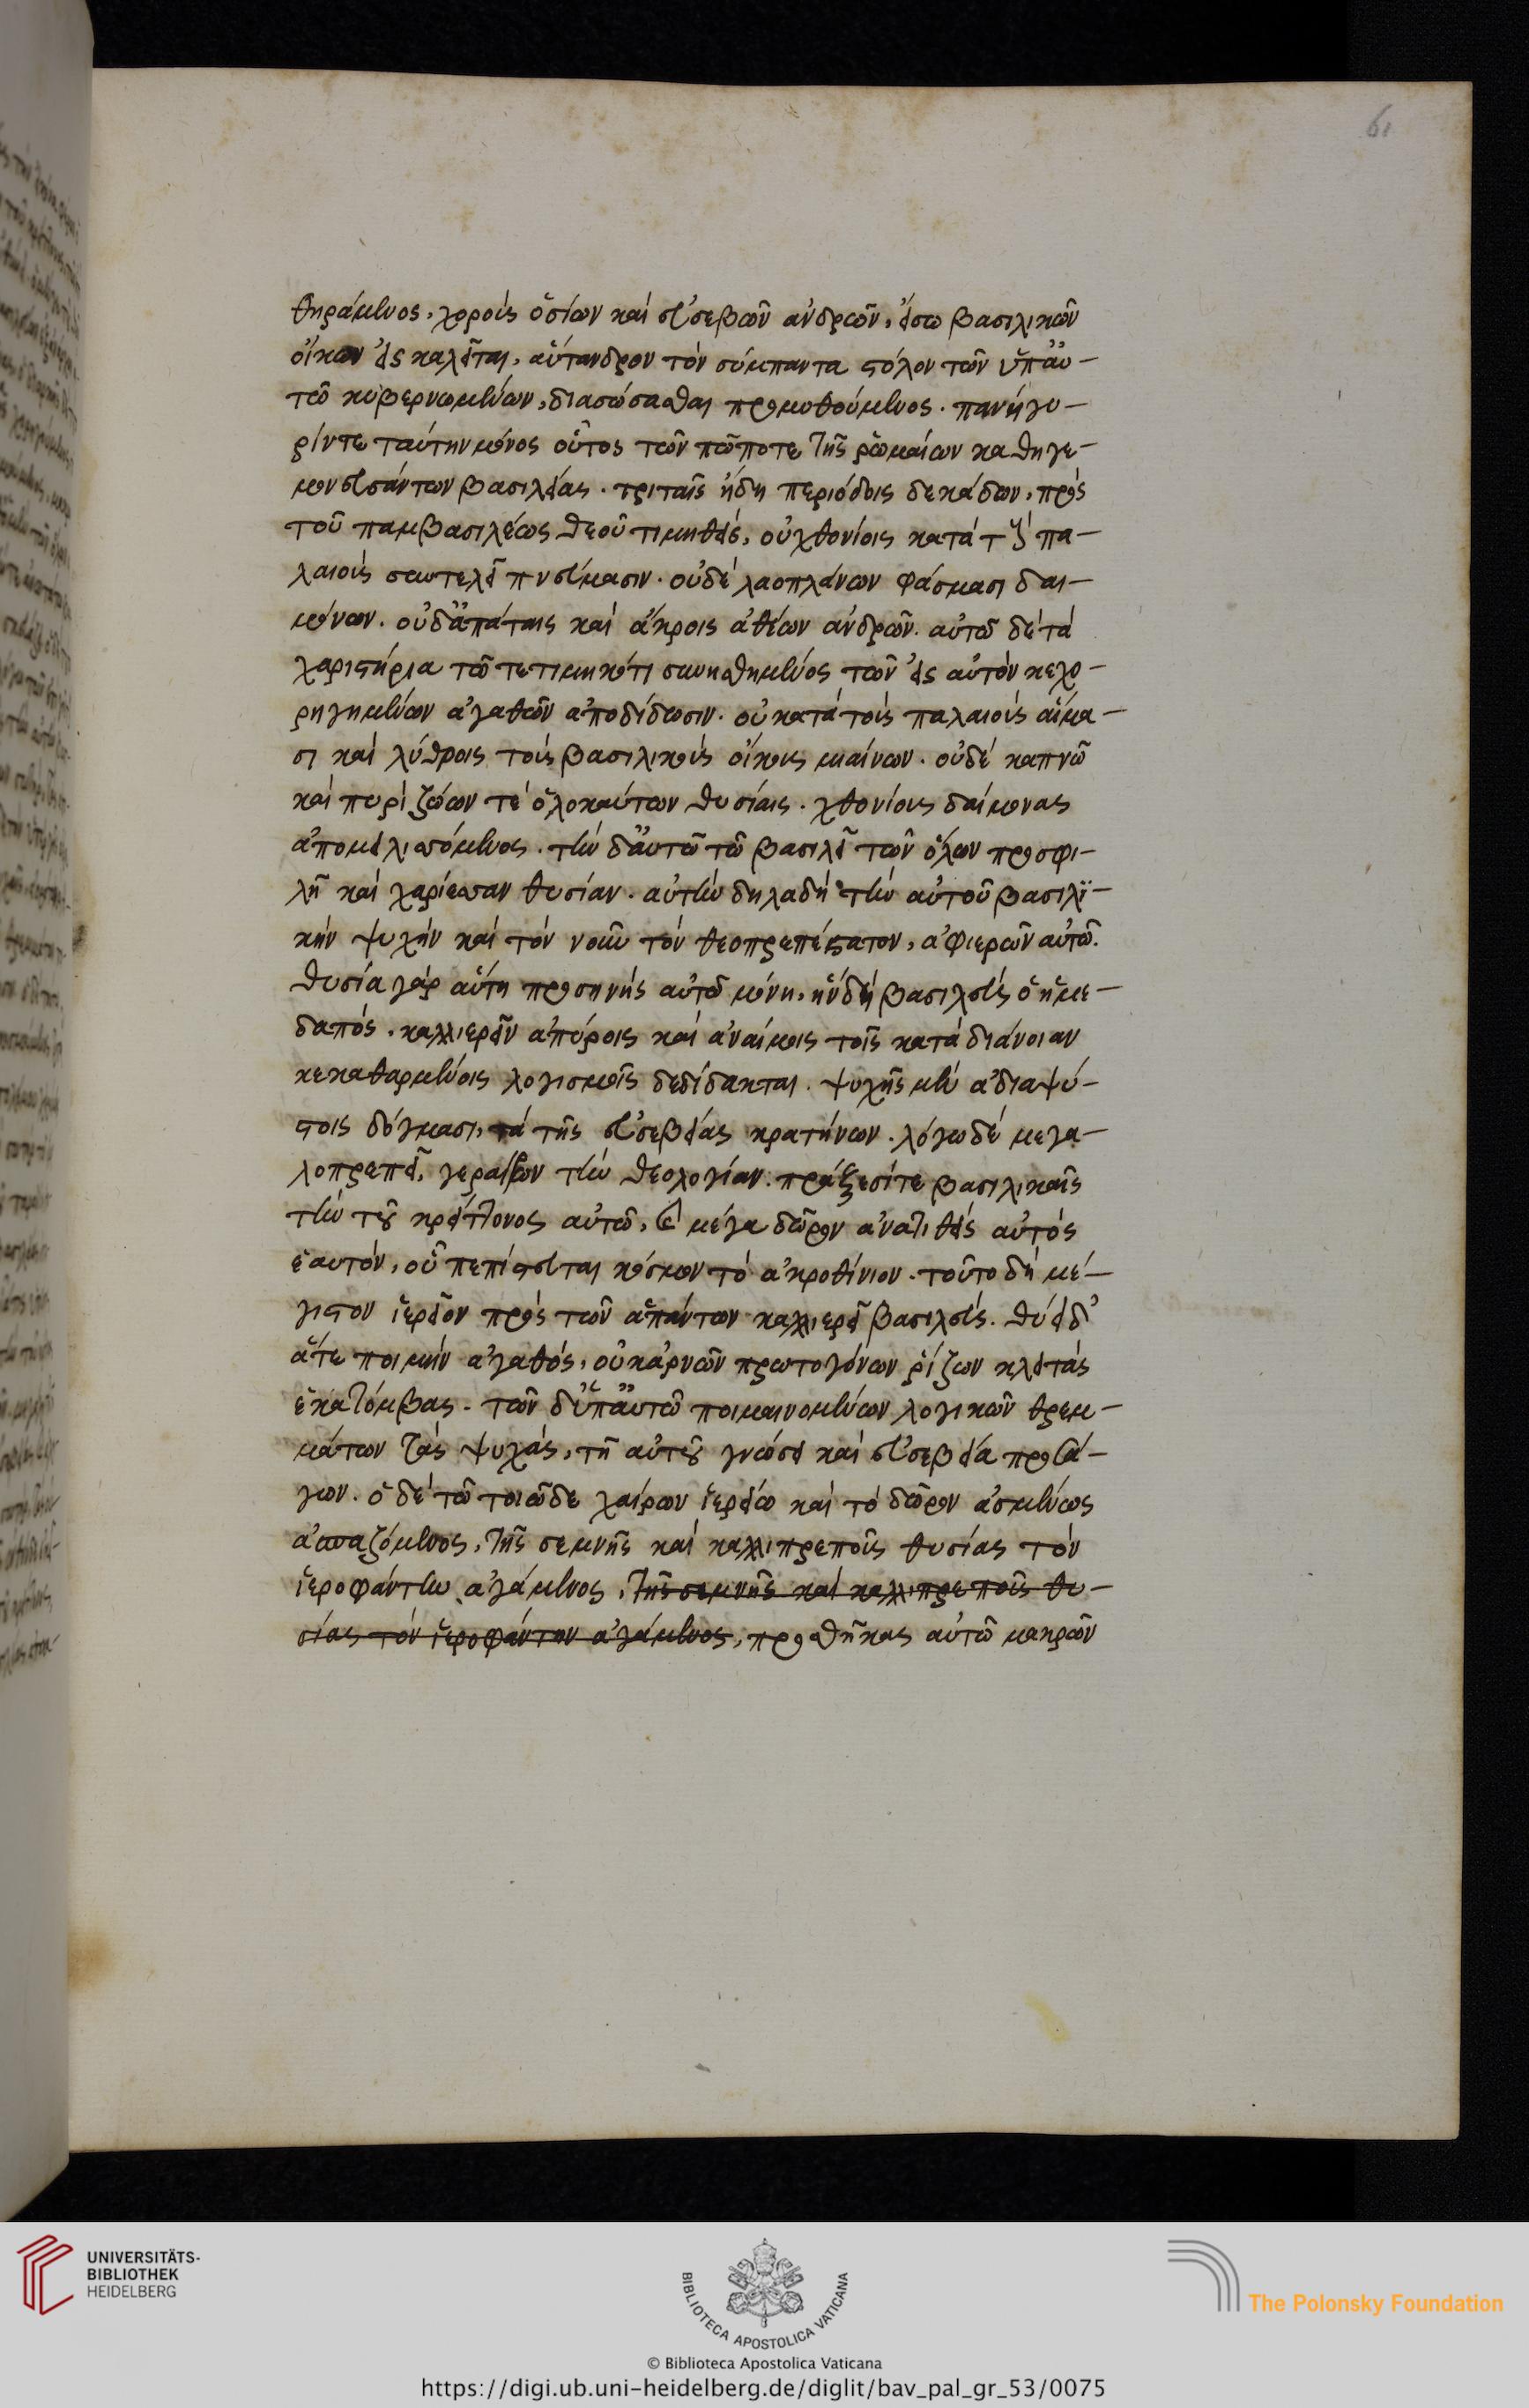 61
θηράμενος, χοροὺς ὁσίων καὶ εὐσεβῶν ἀνδρῶν, εἴσω βασιλικῶν
οἴκων εἰσκαλεῖται, αὔτανδρον τὸν σύμπαντα στόλον τῶν ὑπ' αὐ-
τῶ κυβερνωμένων, διασώσασθαι προμυθούμενος. πανήγυ-
ρίν τε ταύτην μόνος οὗτος τῶν πώποτε τῆς ῥωμαίων καθηγε-
μονευσάντων βασιλείας. τριταῖς ἤδη περιόδοις δεκάδων, πρὸς
τοῦ παμβασιλέως θεοῦ τιμηθεὶς, οὐ χθονίοις κατὰ τοὺς πα-
λαιοὺς συντελεῖ πνεύμασιν. οὐδὲ λαοπλάνων φάσμασι δαι-
μόνων. οὐδ' ἀπάταις καὶ ἄκροις ἀθέων ἀνδρῶν. αὐτῶ δὲ τὰ
χαριστήρια τῶ τετιμηκότι συνησθημένος τῶν εἰς αὐτὸν κεχο-
ρηγημένων ἀγαθῶν ἀποδίδωσιν. οὐ κατὰ τοὺς παλαιοὺς αἵμα-
σι καὶ λύθροις τοὺς βασιλικοὺς οἴκους μιαίνων. οὐδὲ καπνῶ
καὶ πυρὶ ζώων τὲ ὁλοκαύτων θυσίαις. χθονίους δαίμονας
ἀπομειλισσόμενος. τὴν δ' αὐτῶ τῶ βασιλεῖ τῶν ὅλων προσφι-
λῆ καὶ χαρίεσσαν θυσίαν. αὐτὴν δηλαδὴ τὴν αὐτοῦ βασιλϊ-
κὴν ψυχὴν καὶ τὸν νοῦν τὸν θεοπρεπέστατον, ἀφιερῶν αὐτῶ.
θυσία γὰρ αὕτη προσηνὴς αὐτῶ μόνη, ἣν δὴ βασιλεὺς ὁ ἡμε-
δαπὸς, καλλιερεῖν ἀπύροις καὶ ἀναίμοις τοῖς κατὰ διάνοιαν
κεκαθαρμένοις λογισμοῖς δεδίδακται. ψυχῆς μὲν ἀδιαψεύ-
στοις δόγμασι, τὰ τῆς εὐσεβείας κρατύνων. λόγω δὲ μεγα-
λοπρεπεῖ, γεραίρων τὴν θεολογίαν. πράξεσί τε βασιλικαῖς
τὴν τοῦ κρείττονος αὐτῶ, καὶ μέγα δῶρον ἀνατιθεὶς αὐτὸς
ἑαυτὸν, οὗ πεπίστευται κόσμου τὸ ἀκροθίνιον. τοῦτο δὴ μέ-
γιστον ἱερεῖον πρὸς τῶν ἁπάντων καλλιερεῖ βασιλεὺς. θύει δ'
ἅτε ποιμὴν ἀγαθὸς, οὐκ ἀρνῶν πρωτογόνων ῥίζων κλειτὰς
ἑκατόμβας. τῶν δ' ὑπ' αὐτῶ ποιμαινομένων λογικῶν θρεμ-
μάτων τὰς ψυχὰς, τῆ αὐτοῦ γνώσει καὶ εὐσεβεία προσά-
γων. ὁ δὲ τῶ τοιῶδε χαίρων ἱερείω καὶ τὸ δῶρον ἀσμένως
ἀσπαζόμενος, τῆς σεμνῆς καὶ καλλιπρεποῦς θυσίας τὸν
ἱεροφάντην ἀγάμενος, τῆς σεμνῆς καὶ καλλιπρεποῦς θυ-
σίας τὸν ἱεροφάντην ἀγάμενος, προσθήκας αὐτῶ μακρῶν
UNIVERSITÄTS-
BIBLIOTHEK
HEIDELBERG
BIBLIOTECA APOSTOLICA VATICANA
The Polonsky Foundation
© Biblioteca Apostolica Vaticana
https://digi.ub.uni-heidelberg.de/diglit/bav_pal_gr_53/0075